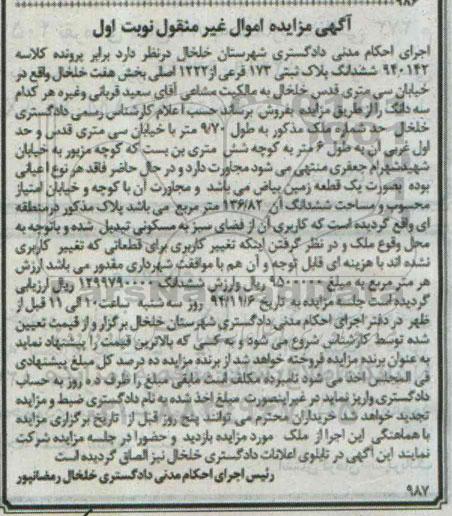 ۹۸۶
آگهی مزایده اموال غیر منقول نوبت اول
اجرای احکام مدنی دادگستری شهرستان خلخال درنظر دارد برابر پرونده کلاسه
۹۴۰۱۴۲ ششدانگ پلاک ثبتی ۱۷۳ فرعی از ۱۲۲۲ اصلی بخش هفت خلخال واقع در
خیابان سی متری قدس خلخال به مالکیت مشاعی آقای سعید قربانی وغیره هر کدام
سه دانگ را از طریق مزایده بفروش برساند حسب اعلام کارشناس رسمی دادگستری
خلخال حد شماره ملک مذکور به طول ۹/۷۰ متر با خیابان سی متری قدس و حد
اول غربی آن به طول ۶ متر به کوچه شش متری بن بست که کوچه مزبور به خیابان
شهید شهرام جعفری منتهی می شود مجاورت دارد و در حال حاضر فاقد هر نوع اعیانی
بوده بصورت یک قطعه زمین بیاض می باشد و مجاورت آن با کوچه و خیابان امتیاز
محسوب و مساحت ششدانگ آن ۱۳۶/۸۲ متر مربع می باشد پلاک مذکور در منطقه
ای واقع گردیده است که کاربری آن از فضای سبز به مسکونی تبدیل شده و باتوجه به
محل وقوع ملک و در نظر گرفتن اینکه تغییر کاربری برای قطعاتی که تغییر کاربری
نشده اند با هزینه ای قابل توجه و آن هم با موافقت شهرداری مقدور می باشد ارزش
هر متر مربع به مبلغ ریال وارزش ششدانگ ریال ارزیابی
گردیده است جلسه مزایده به تاریخ ۹۴/۱۱/۶ روز سه شنبه ساعت ۱۰ الی ۱۱ قبل از
ظهر در دفتر اجرای احکام مدنی دادگستری شهرستان خلخال برگزار و از قیمت تعیین
شده توسط کارشناس شروع می شود و به کسی که بالاترین قیمت را پیشنهاد نماید
به عنوان برنده مزایده فروخته خواهد شد از برنده مزایده ده درصد کل مبلغ پیشنهادی
فی المجلس اخذ می شود نامبرده مکلف است مابقی مبلغ را ظرف ده روز به حساب
دادگستری واریز نماید در غیر اینصورت مبلغ اخذ شده به نام دادگستری ضبط و مزایده
تجدید خواهد شد خریداران محترم می توانند پنج روز قبل از تاریخ برگزاری مزایده
با هماهنگی این اجرا از ملک مورد مزایده بازدید و حضورا در جلسه مزایده شرکت
نمایند این آگهی در تابلوی اعلانات دادگستری خلخال نیز الصاق گردیده است
رئیس اجرای احکام مدنی دادگستری خلخال رمضانپور
۹۸۷